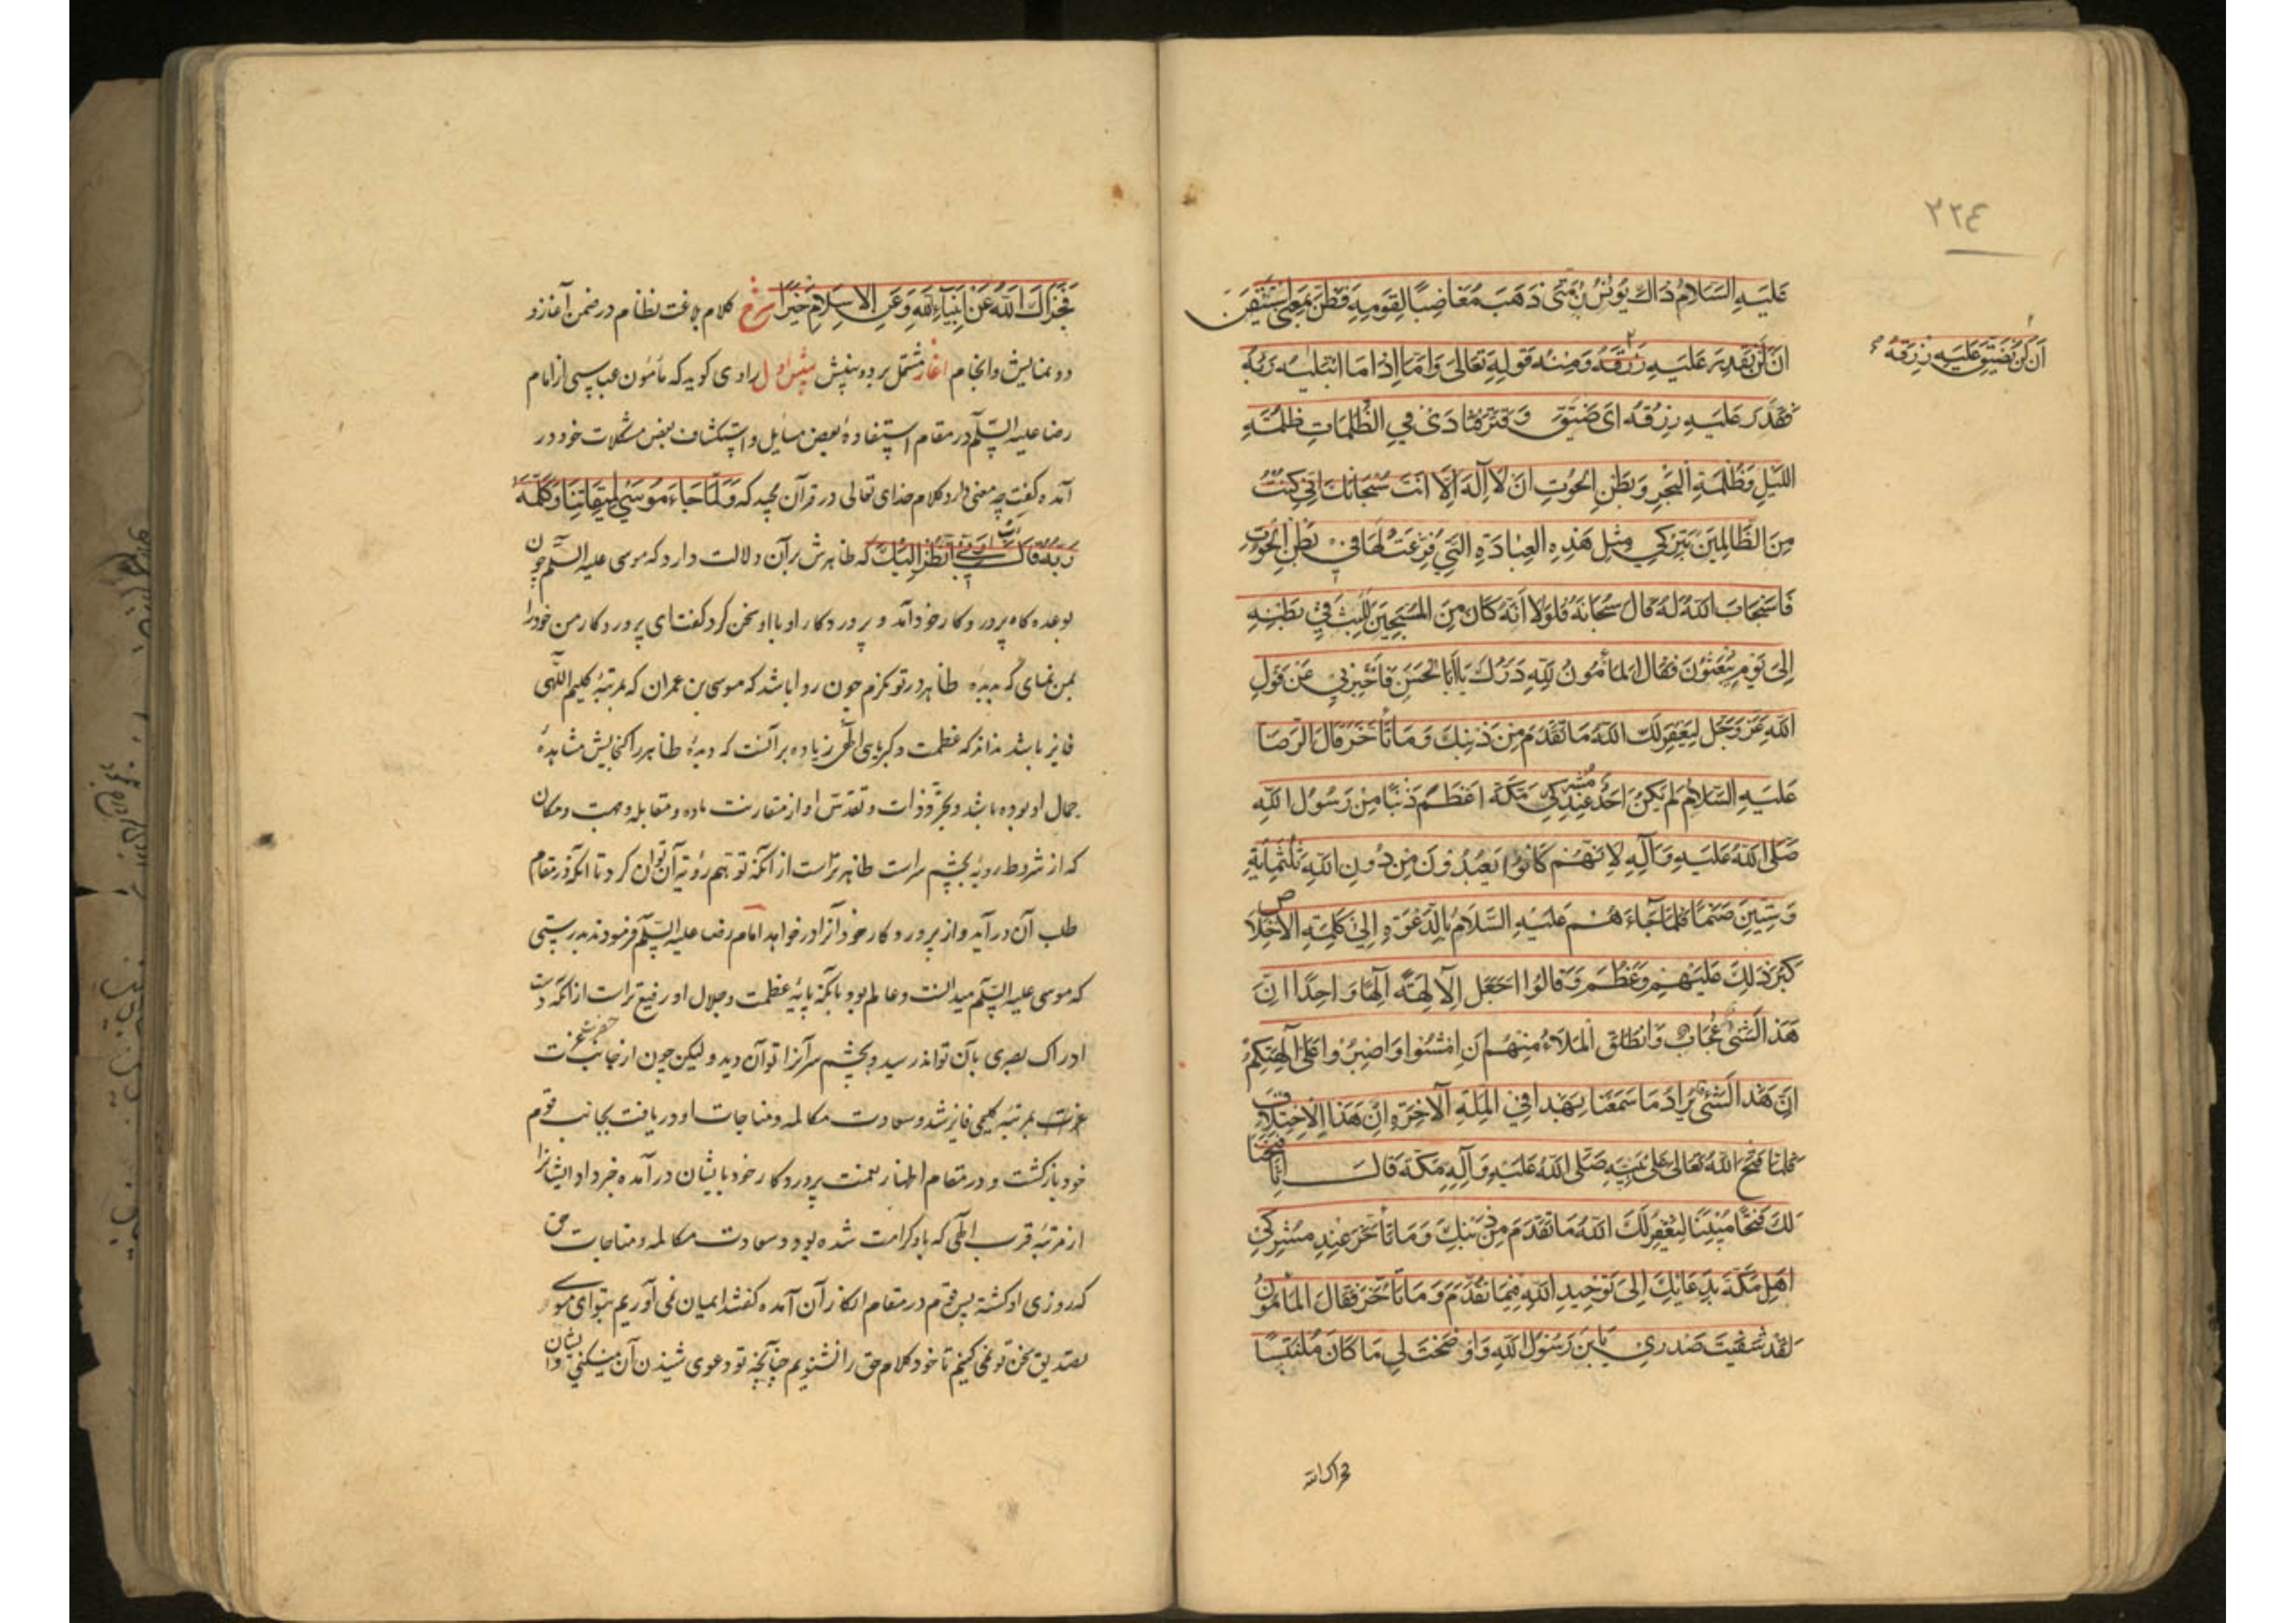 ٢٢٤
عَلَيهِ السَّلامُ ذاكَ يُونُسُ بْنُ مَتّى ذَهَبَ مُغاضِبًا لِقَومِهِ فَظَنَّ بِمَعنى اسْتَيْقَنَ
اَنْ لَنْ نَقْدِرَ عَلَيهِ رِزْقَهُ وَمِنْهُ قَولِهِ تَعالى وَاَمّا اِذا مَا ابْتَليهُ رَبُّهُ
اَنْ لَنْ نُضَيِّقَ عَلَيهِ رِزقَهُ
فَقَدَرَ عَلَيهِ رِزْقَهُ اَى ضَيَّقَ وَ قَتَرَ فَنادَى فِي الظُّلُماتِ ظُلْمَةِ
اللَّيلِ وَظُلْمَةِ البَحْرِ وَبَطْنِ الحُوتِ اَنْ لا اِلهَ اِلّا اَنْتَ سُبْحانَكَ اِنّي كُنْتُ
مِنَ الظّالِمينَ بِتَرْكي مِثلَ هَذِهِ العِبادَةِ الَّتي فَرَّغتَني لَها في بَطْنِ الحُوتِ
فَاسْتَجابَ اللهُ لَهُ قالَ سُبْحانَهُ فَلَولا اَنَّهُ كانَ مِنَ المُسَبِّحينَ لَلَبِثَ في بَطْنِهِ
اِلى يَوْمِ يُبْعَثُونَ فَقالَ المَامُونُ لِلّهِ دَرُّكَ يا اَبَا الحَسَنِ فَاَخْبِرني عَنْ قَولِ
اللهِ عَزَّ وَجَلَّ لِيَغْفِرَ لَكَ اللهُ ما تَقَدَّمَ مِنْ ذَنْبِكَ وَما تَاَخَّرَ قالَ الرِّضا
عَلَيهِ السَّلامُ لَمْ يَكُنْ اَحَدٌ عِنْدَ مُشْرِكي مَكَّةَ اَعْظَمَ ذَنْبًا مِنْ رَسُولِ اللهِ
صَلَّى اللهُ عَلَيهِ وَآلِهِ لِاَنَّهُمْ كانُوا يَعْبُدُونَ مِنْ دُونِ اللهِ ثَلثَمِائَةِ
وَسِتّينَ صَنَمًا فَلَمّا جاءَ هُمْ عَلَيهِ السَّلامُ بِالدَّعْوَةِ اِلى كَلِمَةِ الاِخْلاصِ
كَبُرَ ذلِكَ عَلَيْهِمْ وَعَظُمَ وَقالُوا اَجَعَلَ الآلِهَةَ اِلهًا واحِدًا اِنَّ
هَذا لَشَئٌ عُجابٌ وَانْطَلَقَ المَلَاُ مِنْهُمْ اَنِ امْشُوا وَاصْبِرُوا عَلى آلِهَتِكُمْ
اِنَّ هَذا لَشَئٌ يُرادُ ما سَمِعْنا بِهَذا فِي المِلَّةِ الآخِرَةِ اِنْ هَذا اِلّا اخْتِلاقٌ
فَلَمّا فَتَحَ اللهُ تَعالى عَلى نَبِيِّهِ صَلَّى اللهُ عَلَيهِ وَآلِهِ مَكَّةَ قالَ اِنّا فَتَحْنا
لَكَ فَتْحًا مُبينًا لِيَغْفِرَ لَكَ اللهُ ما تَقَدَّمَ مِنْ ذَنْبِكَ وَما تَاَخَّرَ عِنْدَ مُشْرِكي
اَهْلِ مَكَّةَ بِدُعائِكَ اِلى تَوْحيدِ اللهِ فيما تَقَدَّمَ وَما تَاَخَّرَ فَقالَ المَامُونُ
لَقَدْ شَفَيتَ صَدْري يا ابنَ رَسُولِ اللهِ وَاَوْضَحْتَ لي ما كانَ مُلْتَبِسًا
فجزاک الله
فَجَزاكَ اللهُ عَنْ اَنْبِياءِ اللهِ وَعَنِ الاِسْلامِ خَيْرًا شرح کلام بلاغت نظام در ضمن آغاز و
دو نمایش وانجام آغاز مشتمل بر دو بینش بینش اول راوی کوید که مأمون عباسی از امام
رضا علیه السّلم در مقام استفادهٔ بعضی مسایل و استکشاف بعض مشکلات خود در
آمده کفت چه معنی دارد کلام خدای تعالی در قرآن مجید که وَلَمّا جاءَ مُوسى لِميقاتِنا وَكَلَّمَهُ
رَبُّهُ قالَ رَبِّ اَرِني اَنْظُرْ اِلَيْكَ که ظاهرش بر آن دلالت دارد که موسی علیه السّلم چون
بوعده کاه پرورد کار خود آمد و پرورد کار او با او سخن کرد کفت ای پرورد کار من خود را
بمن نمای که بدیدهٔ ظاهر در تو نکرم چون روا باشد که موسی بن عمران که بمرتبهٔ کلیم اللّهی
فایز باشد نداند که عظمت و کبریای الٰهی زیاده بر آنست که دیدهٔ ظاهر را کنجایش مشاهدهٔ
جمال او بوده باشد و تجرّد ذات و تقدّس او از مقارنت ماده و مقابله و جهت و مکان
که از شروط رویة بچشم سراست ظاهر تر است از آنکه توهم رؤیة آن توان کرد تا آنکه در مقام
طلب آن در آید و از پرورد کار خود آنرا در خواهد امام رضا علیه السّلم فرمودند بدرستی
که موسی علیه السّلم میدانست و عالم بود بآنکه پایهٔ عظمت و جلال او رفیع تر است از آنکه دست
ادراک بصری بآن تواند رسید و بچشم سر آنرا توان دید و لیکن چون از جانب حضرت
عزت بمرتبهٔ کلیمی فایز شد و سعادت مکالمه و مناجات او دریافت بجانب قوم
خود باز کشت و در مقام اظهار نعمت پرورد کار خود با یشان در آمده خبر داد ایشانرا
از مرتبهٔ قرب الٰهی که باو کرامت شده بود و سعادت مکالمه و مناجات حق
که روزی او کشته پس قوم در مقام انکار آن آمده کفتند ایمان نمی آوریم بتو ای موسی و
تصدیق سخن تو نمی کنیم تا خود کلام حق را نشنویم چنانچه تو دعوی شنیدن آن میکنی